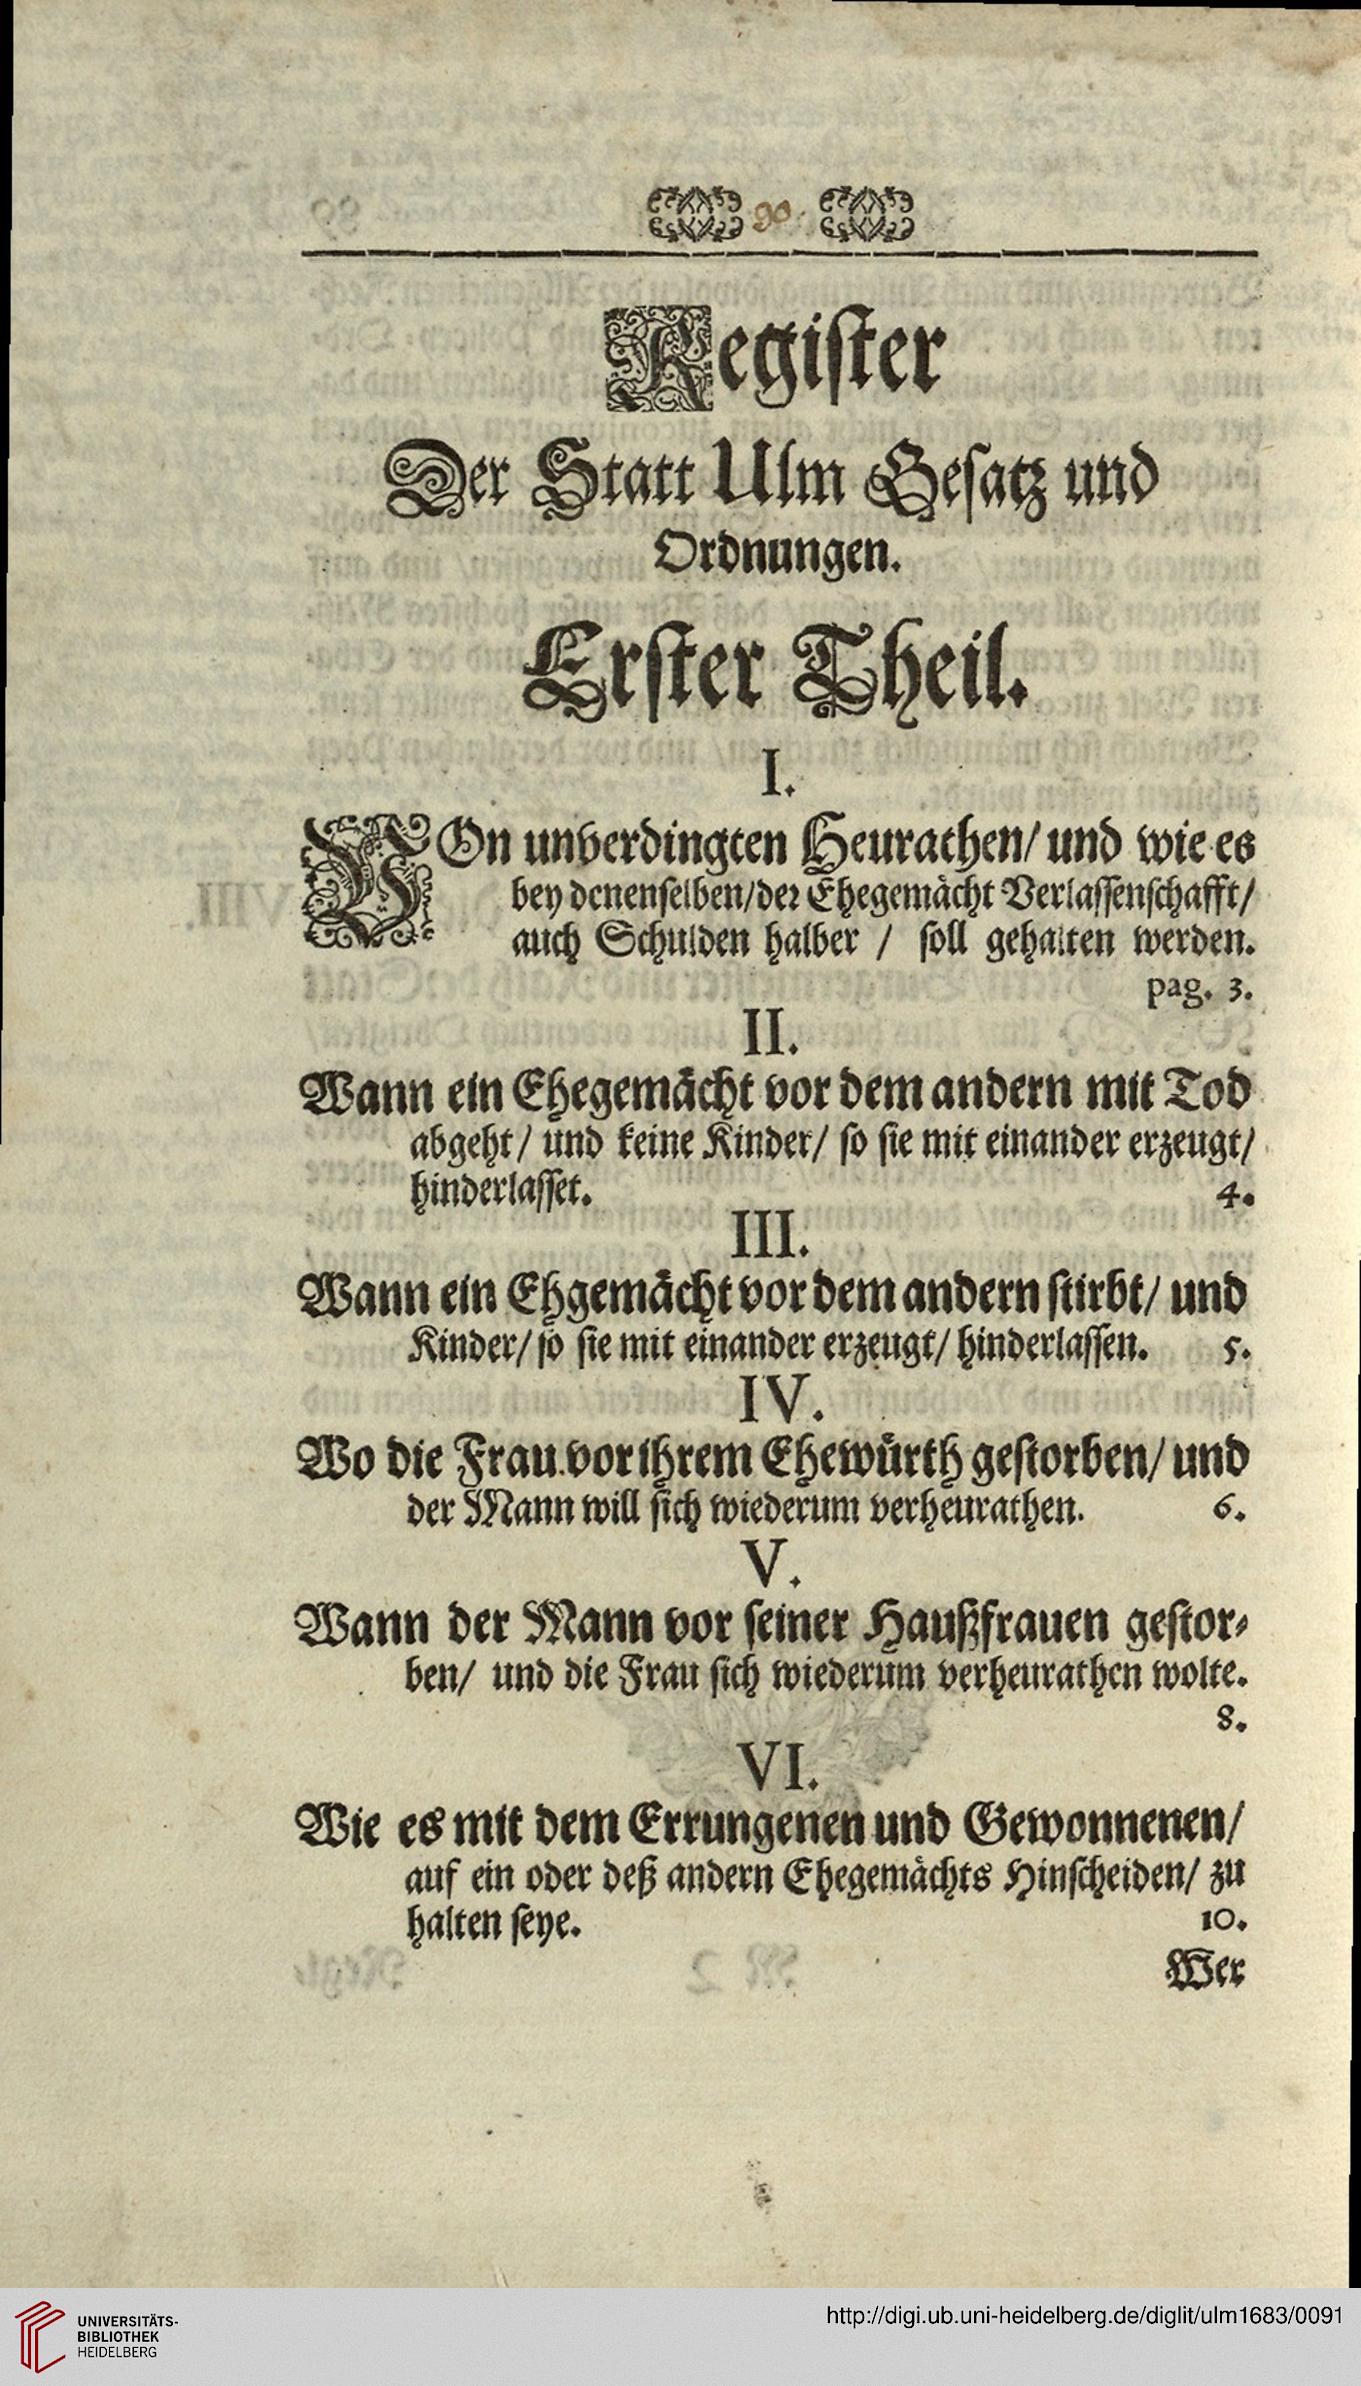 90.
Register
Der Statt Ulm Gesatz und
Ordnungen.
Erster Theil.
I.
VOn unverdingten Heurathen/ und wie es
bey denenselben/der Ehegemächt Verlassenschafft/
auch Schulden halber / soll gehalten werden.
pag. 3.
II.
Wann ein Ehegemächt vor dem andern mit Tod
abgeht/ und keine Kinder/ so sie mit einander erzeugt/
hinderlasset. 4.
III.
Wann ein Ehgemächt vor dem andern stirbt/ und
Kinder/ so sie mit einander erzeugt/ hinderlassen. 5.
IV.
Wo die Frau vor ihrem Ehewürth gestorben/ und
der Mann will sich wiederum verheurathen. 6.
V.
Wann der Mann vor seiner Haußfrauen gestor-
ben/ und die Frau sich wiederum verheurathen wolte.
8.
VI.
Wie es mit dem Errungenen und Gewonnenen/
auf ein oder deß andern Ehegemächts Hinscheiden/ zu
halten seye. 10.
Wer
UNIVERSITÄTS-
BIBLIOTHEK
HEIDELBERG
http://digi.ub.uni-heidelberg.de/diglit/ulm1683/0091